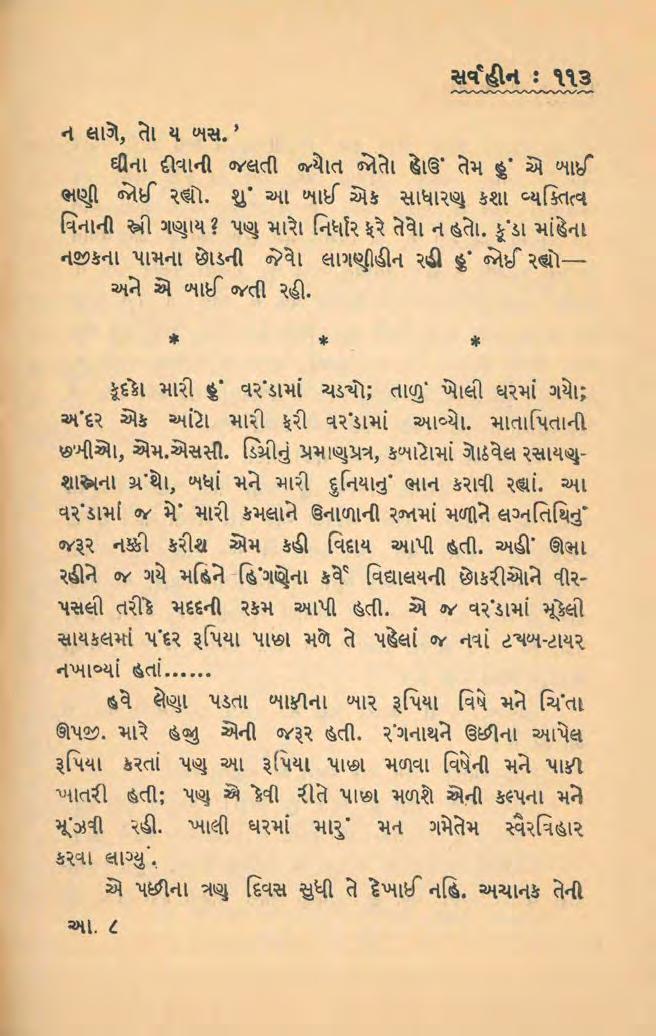 સર્વહીન : ૧૧૩
ન લાગે, તો ય બસ.’
ઘીના દીવાની જલતી જ્યોત જોતો હોઉં તેમ હું એ બાઈ
ભણી જોઈ રહ્યો. શું આ બાઈ એક સાધારણ કશા વ્યક્તિત્વ
વિનાની સ્ત્રી ગણાય? પણ મારો નિર્ધાર ફરે તેવો ન હતો. કૂંડા માંહેના
નજીકના પામના છોડની જેવો લાગણીહીન રહી હું જોઈ રહ્યો—
અને એ બાઈ જતી રહી.
* * *
કૂદકો મારી હું વરંડામાં ચડ્યો; તાળું ખોલી ઘરમાં ગયો;
અંદર એક આંટો મારી ફરી વરંડામાં આવ્યો. માતાપિતાની
છબીઓ, એમ.એસસી. ડિગ્રીનું પ્રમાણપત્ર, કબાટોમાં ગોઠવેલ રસાયણ-
શાસ્ત્રના ગ્રંથો, બધાં મને મારી દુનિયાનું ભાન કરાવી રહ્યાં. આ
વરંડામાં જ મેં મારી કમલાને ઉનાળાની રજામાં મળીને લગ્નતિથિનું
જરૂર નક્કી કરીશ એમ કહી વિદાય આપી હતી. અહીં ઊભા
રહીને જ ગયે મહિને હિંગણેના કર્વે વિદ્યાલયની છોકરીઓને વીર-
પસલી તરીકે મદદની રકમ આપી હતી. એ જ વરંડામાં મૂકેલી
સાયકલમાં પંદર રૂપિયા પાછા મળે તે પહેલાં જ નવાં ટ્યબ-ટાયર
નખાવ્યાં હતાં......
હવે લેણા પડતા બાકીના બાર રૂપિયા વિષે મને ચિંતા
ઊપજી. મારે હજુ એની જરૂર હતી. રંગનાથને ઉછીના આપેલ
રૂપિયા કરતાં પણ આ રૂપિયા પાછા મળવા વિષેની મને પાકી
ખાતરી હતી; પણ એ કેવી રીતે પાછા મળશે એની કલ્પના મને
મૂંઝવી રહી. ખાલી ઘરમાં મારું મન ગમેતેમ સ્વૈરવિહાર
કરવા લાગ્યું.
એ પછીના ત્રણ દિવસ સુધી તે દેખાઈ નહિ. અચાનક તેની
આ. ૮